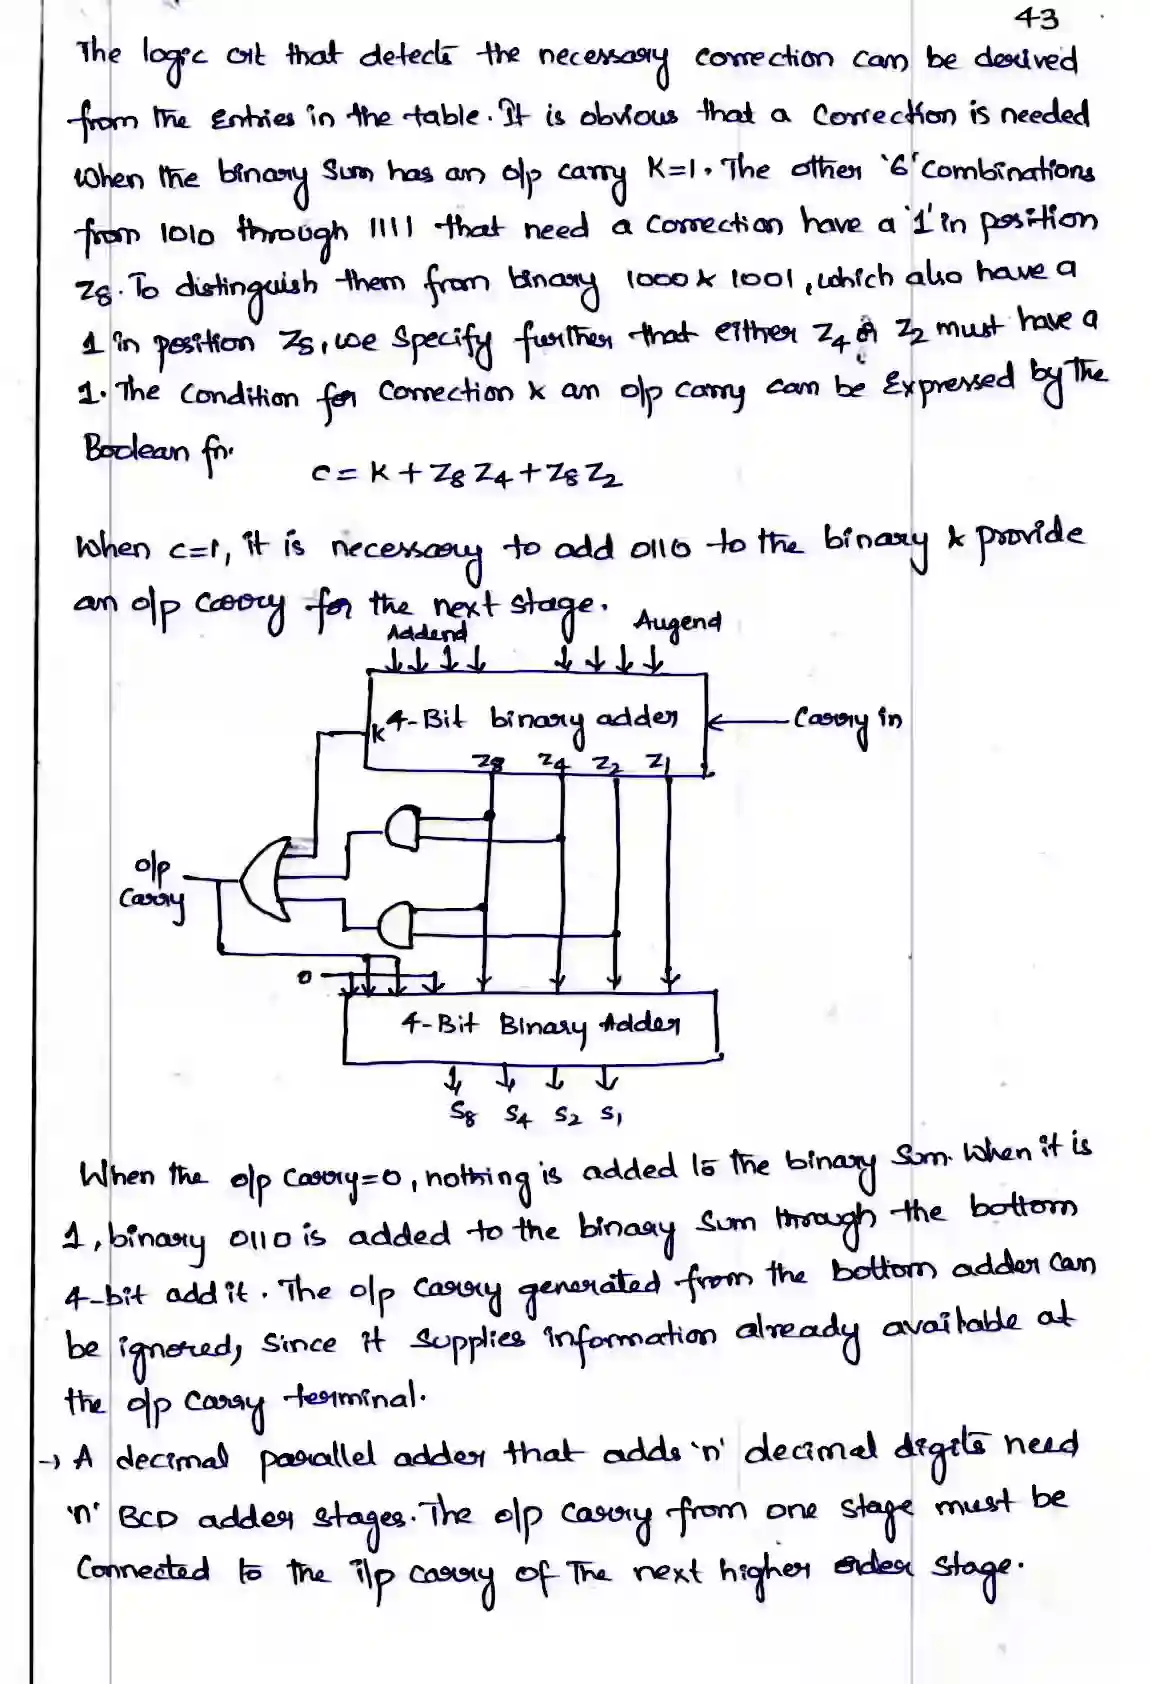 43
The logic ckt that detects the necessary correction can be derived
from the Entries in the table. It is obvious that a Correction is needed
when the binary Sum has an o/p carry K=1. The other '6' Combinations
from 1010 through 1111 that need a correction have a '1' in position
Z8. To distinguish them from binary 1000 & 1001, which also have a
1 in position Z8, we Specify further that either Z4 or Z2 must have a
1. The Condition for Correction & an o/p carry can be Expressed by the
Boolean fn.
C = K + Z8 Z4 + Z8 Z2
When C=1, it is necessary to add 0110 to the binary & provide
an o/p carry for the next stage.
Addend Augend
K 4-Bit binary adder Carry in
Z8 Z4 Z2 Z1
o/p
Carry
0
4-Bit Binary Adder
S8 S4 S2 S1
When the o/p Carry=0, nothing is added to the binary Sum. When it is
1, binary 0110 is added to the binary Sum through the bottom
4-bit add it. The o/p Carry generated from the bottom adder Can
be ignored, Since it Supplies information already available at
the o/p Carry terminal.
→ A decimal parallel adder that adds 'n' decimal digits need
'n' BCD adder stages. The o/p carry from one stage must be
Connected to the i/p carry of The next higher order Stage.